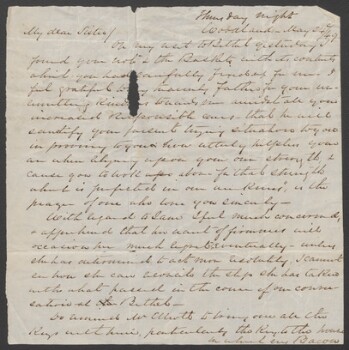 Thursday night
Woodland May 22
My dear Sister
On my went to Bethel yesterday I
found your note & the Basket with its contents
which you had carefully for me. I
feel grateful to my heavenly Father for your un-
kindness towards me amidst all your
cares. that he will
sanctify your present trying situation to you
in proving to you how utterly helpless you
are when leaning upon your own strength, &
cause you to look up above for that strength
which is perfected in our weakness, is the
prayer of one who loves you sincerely.
With regard to I feel much concerned,
& apprehend that her want of firmness will
occasion her much eventually. unless
she has determined to act more decidedly, I cannot
see how she can reconcile the step she has taken
with what passed in the course of our conver-
sations at the Bethel.
Do remind Mr to bring over all the
Keys with him, particularly the Key to the house
in which my Bacon